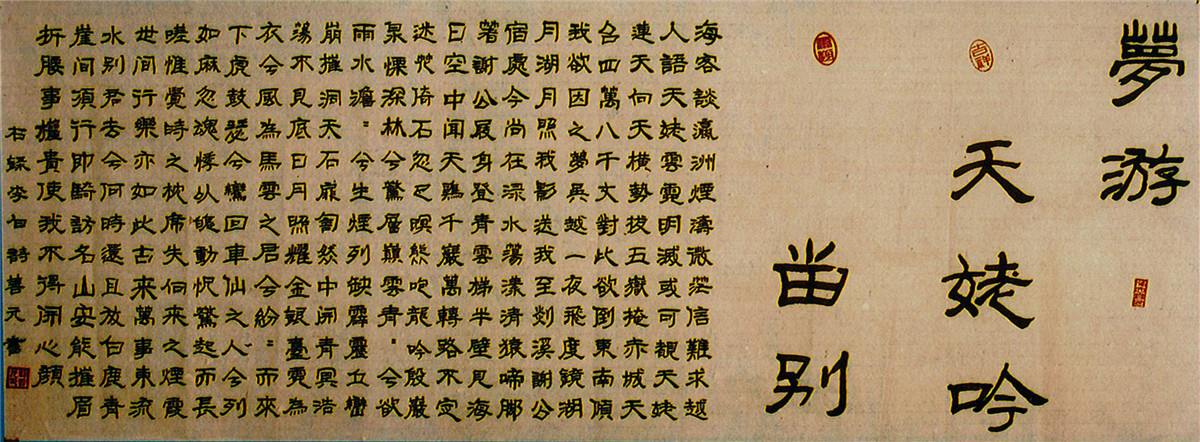 夢游
天姥吟
畄别
吉祥
海客談瀛洲煙濤微茫信難求越
人語天姥雲霓明滅或可覩天姥
連天向天橫勢拔五嶽掩赤城天
台四萬八千丈對此欲倒東南傾
我欲因之夢吳越一夜飛度鏡湖
月湖月照我影送我至剡溪謝公
宿處今尚在淥水蕩漾清猿啼脚
著謝公屐身登青雲梯半壁見海
日空中聞天鷄千巖萬轉路不定
迷花倚石忽已暝熊咆龍吟殷巖
泉慄深林兮驚層巔雲青〻兮欲
雨水澹〻兮生煙列缺霹靂丘巒
崩摧洞天石扉訇然中開青冥浩
蕩不見底日月照耀金銀臺霓為
衣兮風為馬雲之君兮紛〻而來
下虎鼓瑟兮鸞回車仙之人兮列
如麻忽魂悸以魄動怳驚起而長
嗟惟覺時之枕席失向來之煙霞
世间行樂亦如此古來萬事東流
水别君去兮何時還且放白鹿青
崖间須行即騎訪名山安能摧眉
折腰事權貴使我不得開心顏
右録李白詩善元書